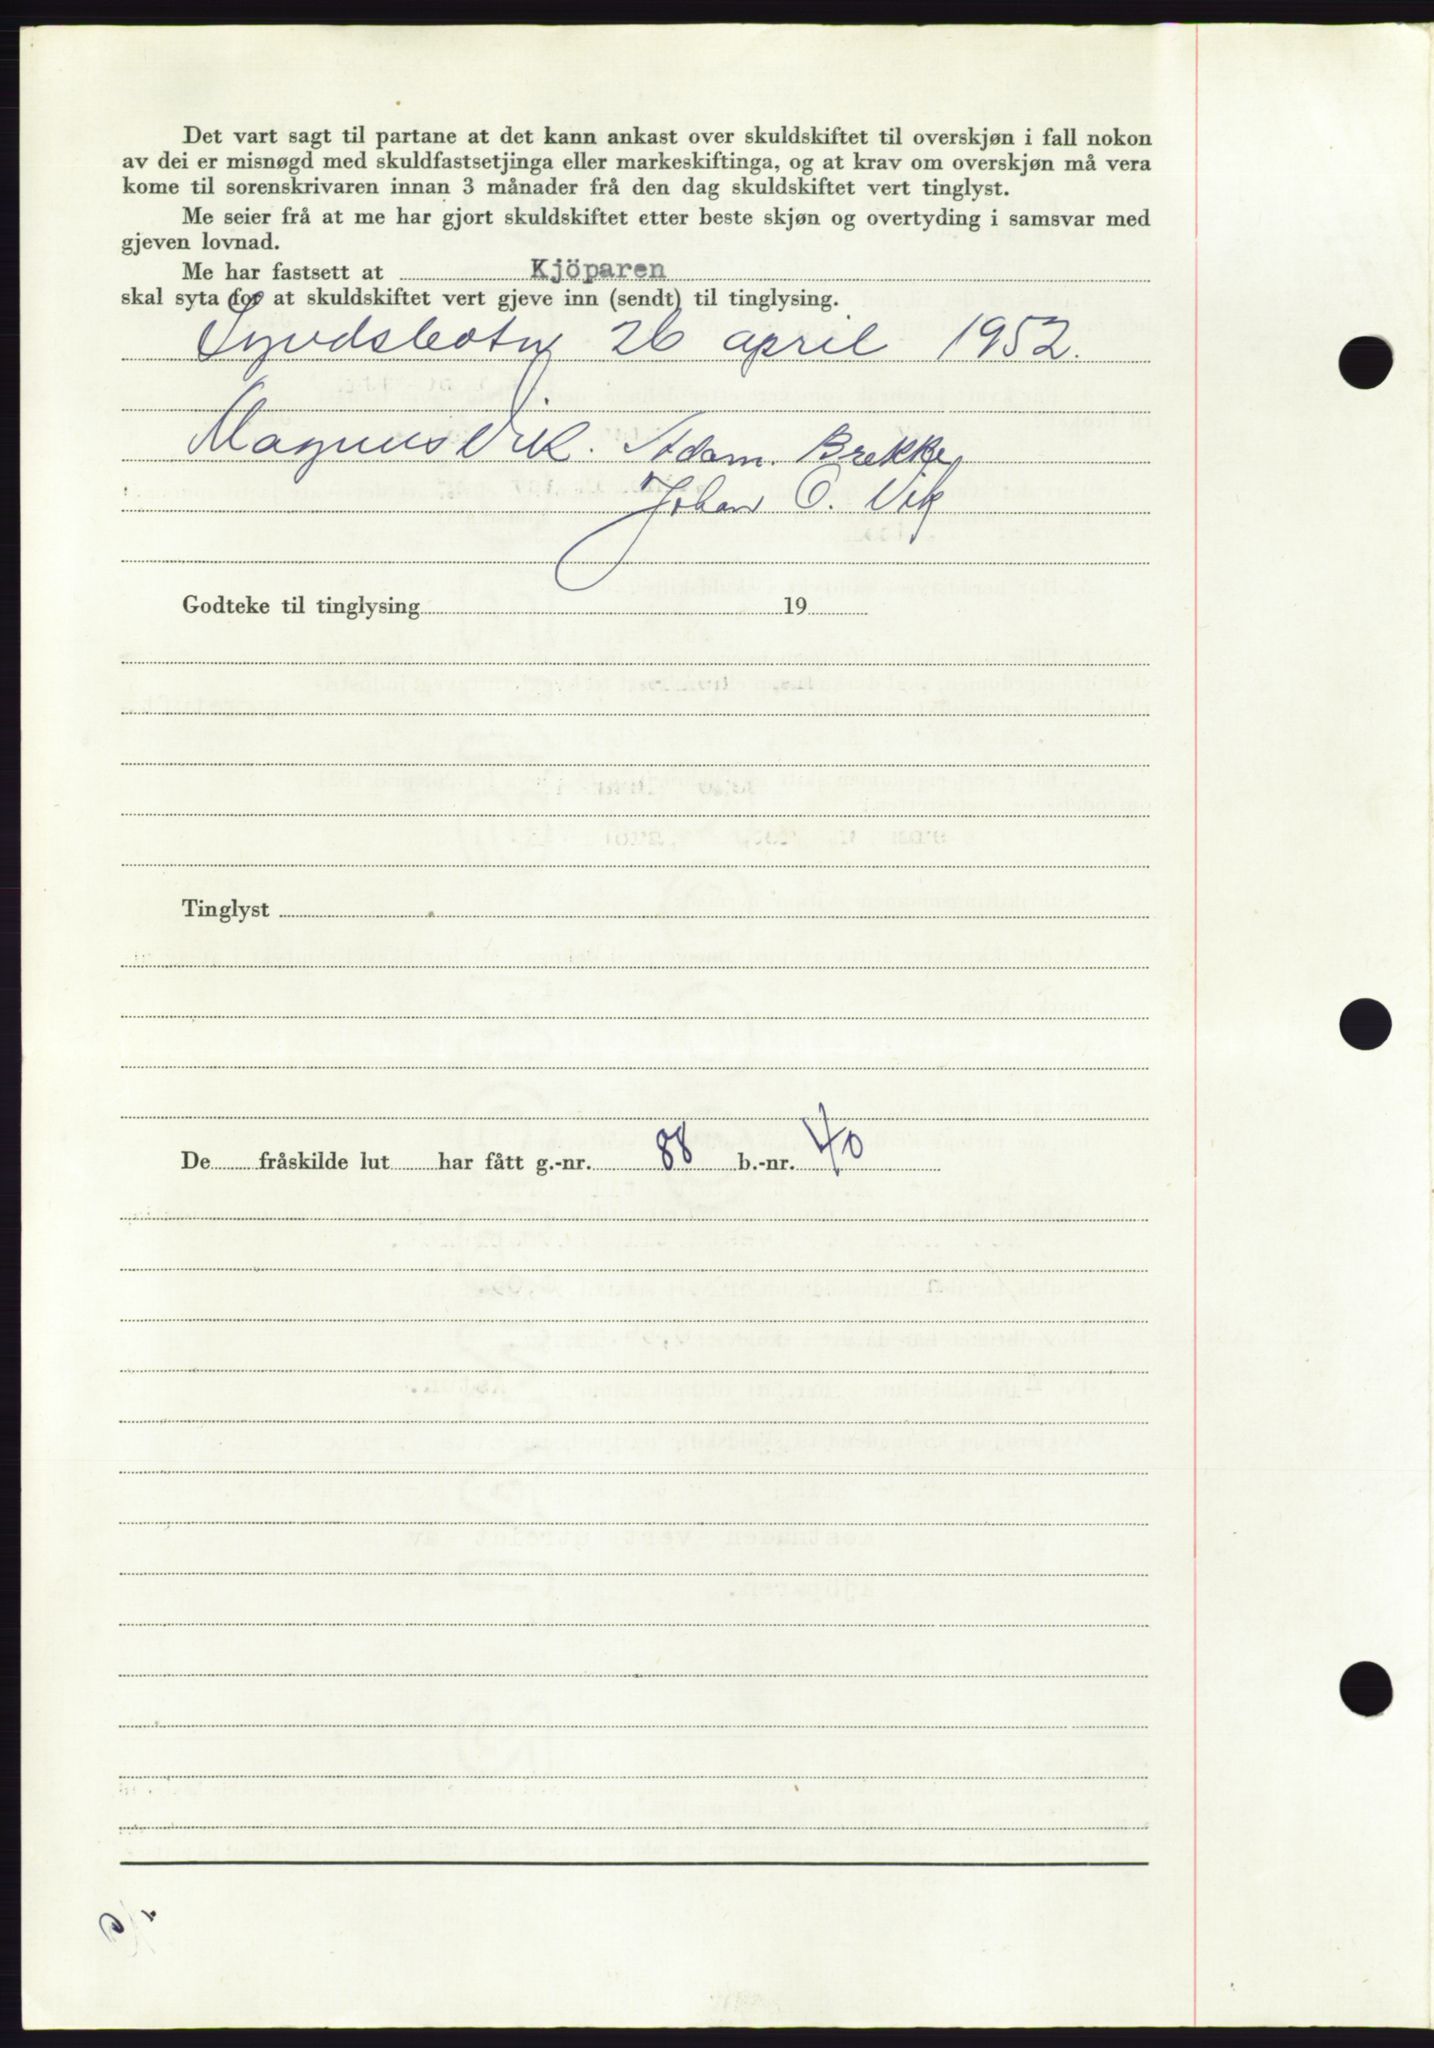 Det vart sagt til partane at det kann ankast over skuldskiftet til overskjøn i fall nokon
av dei er misnøgd med skuldfastsetjinga eller markeskiftinga, og at krav om overskjøn må vera
kome til sorenskrivaren innan 3 månader frå den dag skuldskiftet vert tinglyst.
Me seier frå at me har gjort skuldskiftet etter beste skjøn og overtyding i samsvar med
gjeven lovnad.
Me har fastsett at Kjöparen
skal syta for at skuldskiftet vert gjeve inn (sendt) til tinglysing.
26 april 1952.
Magnus Vik. Adam. Brekke
Johan O. Vik
Godteke til tinglysing 19
Tinglyst
De fråskilde lut har fått g.-nr. 88 b.-nr. 40